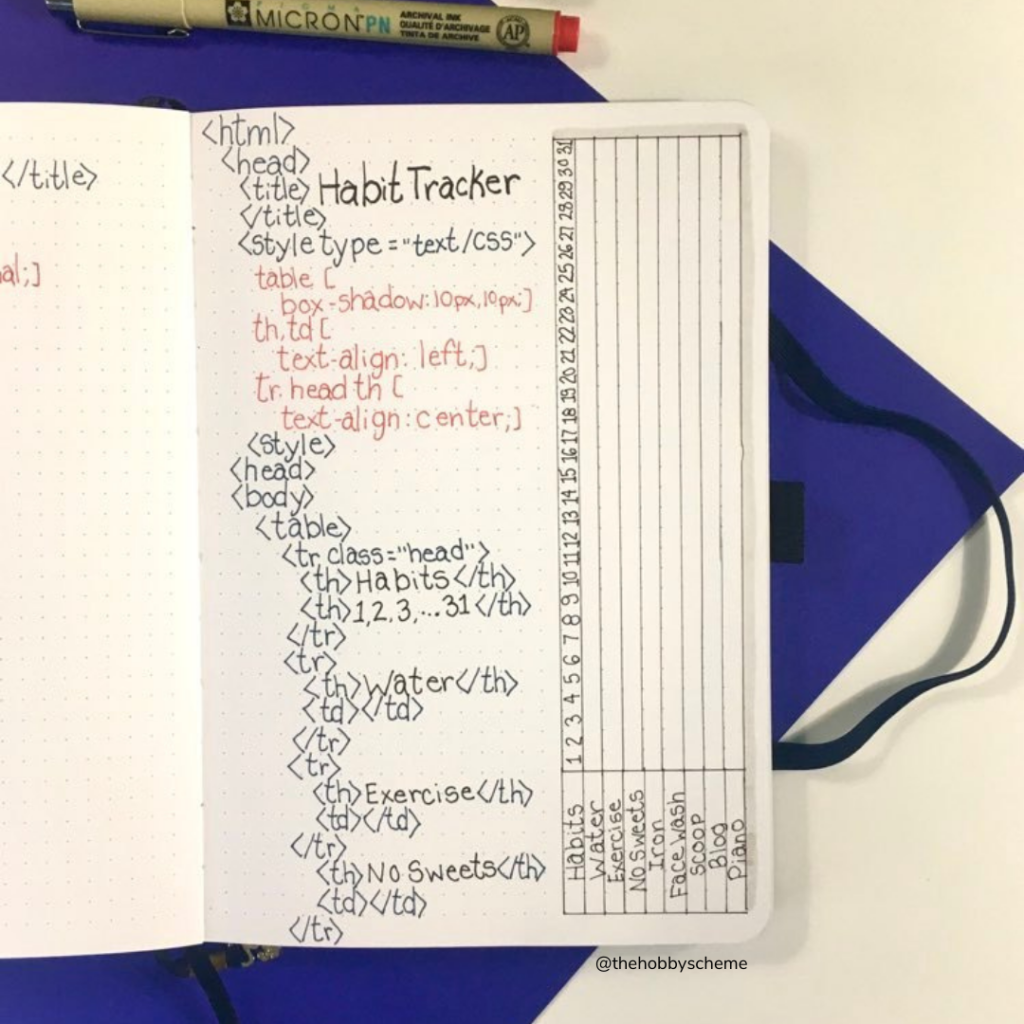 SIGMA
MICRON PN
ARCHIVAL INK
QUALITÉ D'ARCHIVAGE
TINTA DE ARCHIVE
AP
</title>
al;]
<html>
<head>
<title> Habit Tracker
</title>
<style type="text/css">
table [
box-shadow:10px,10px;]
th,td [
text-align: left;]
tr.head th [
text-align:center;]
<style>
<head>
<body>
<table>
<tr class="head">
<th>Habits</th>
<th>1,2,3,...31</th>
</tr>
<tr>
<th>Water</th>
<td></td>
</tr>
<tr>
<th>Exercise</th>
<td></td>
</tr>
<th>No Sweets</th>
<td></td>
</tr>
Habits 1 2 3 4 5 6 7 8 9 10 11 12 13 14 15 16 17 18 19 20 21 22 23 24 25 26 27 28 29 30 31
Water
Exercise
No Sweets
Iron
Face Wash
Scoop
Blog
Piano
@thehobbyscheme